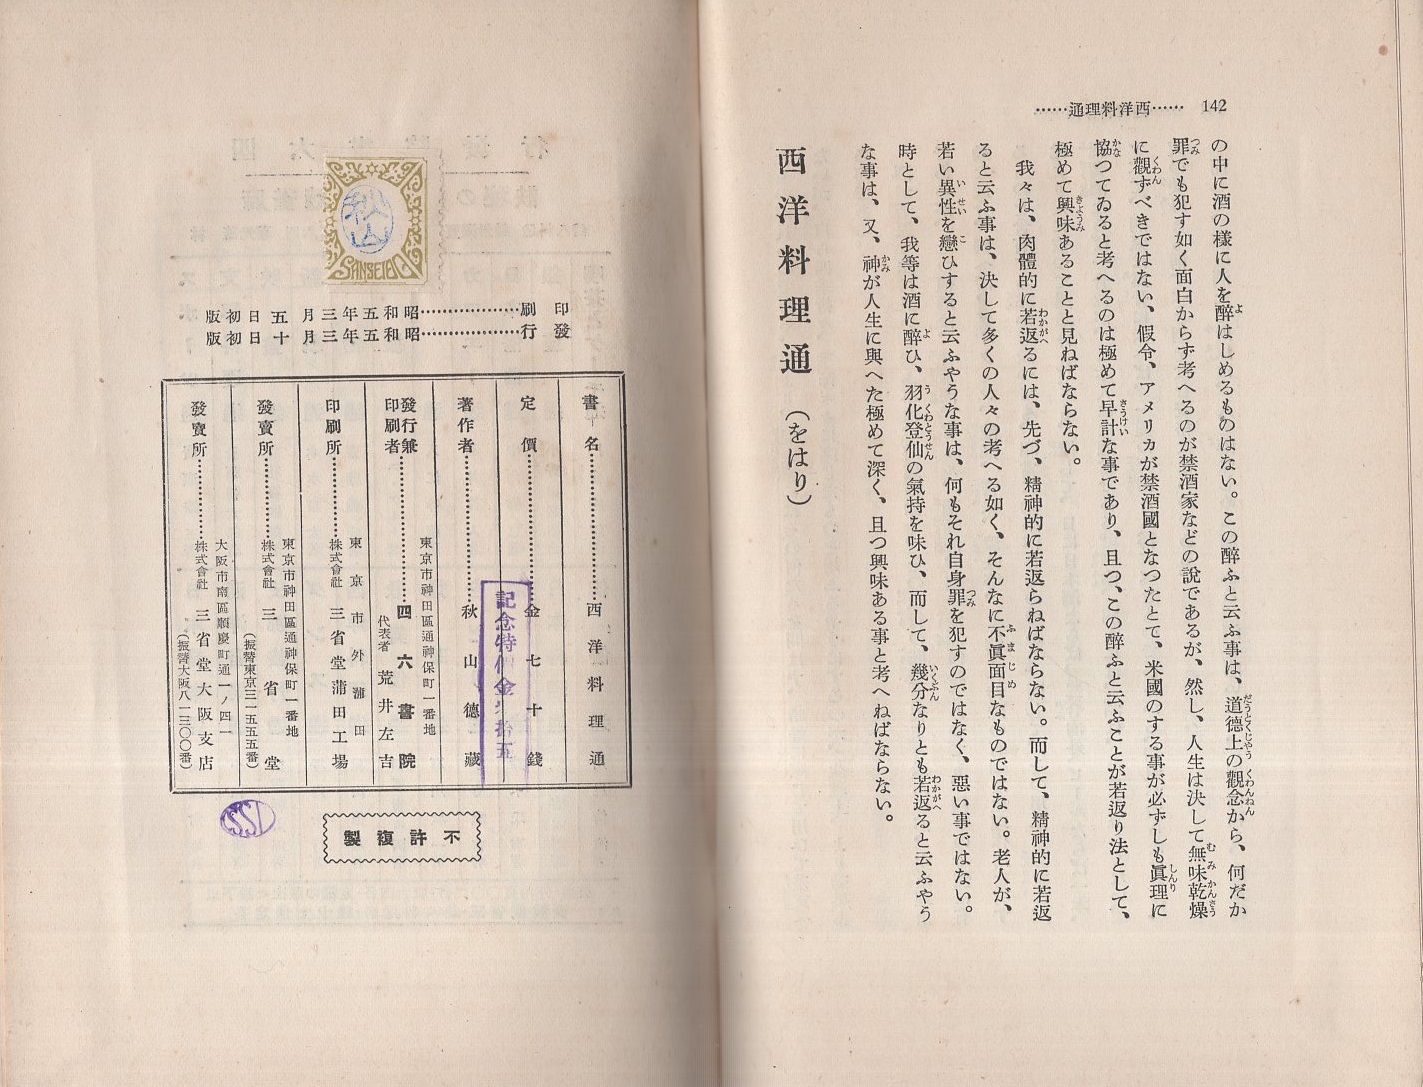 142 ……西洋料理通……
の中に酒の様に人を醉はしめるものはない。この醉ふと云ふ事は、道德上の觀念から、何だか
罪でも犯す如く面白からず考へるのが禁酒家などの說であるが、然し、人生は決して無味乾燥
に觀ずべきではない、假令、アメリカが禁酒國となつたとて、米國のする事が必ずしも眞理に
協つてゐると考へるのは極めて早計な事であり、且つ、この醉ふと云ふことが若返り法として、
極めて興味あることと見ねばならない。
我々は、肉體的に若返るには、先づ、精神的に若返らねばならない。而して、精神的に若返
ると云ふ事は、決して多くの人々の考へる如く、そんなに不眞面目なものではない。老人が、
若い異性を戀ひすると云ふやうな事は、何もそれ自身罪を犯すのではなく、惡い事ではない。
時として、我等は酒に醉ひ、羽化登仙の氣持を味ひ、而して、幾分なりとも若返ると云ふやう
な事は、又、神が人生に與へた極めて深く、且つ興味ある事と考へねばならない。
西洋料理通 (をはり)
秋山
SANSEIDO
印刷……昭和五年三月五日初版
發行……昭和五年三月十日初版
書名……西洋料理通
定價……金七十錢
記念特價金
拾五
著作者……秋山德藏
東京市神田區通神保町一番地
發行兼印刷者……四六書院
代表者 荒井左吉
東京市外蒲田
印刷所……株式會社 三省堂蒲田工場
東京市神田區通神保町一番地
發賣所……株式會社 三省堂
(振替東京三一五五五番)
大阪市南區順慶町通一ノ四一
發賣所……株式會社 三省堂大阪支店
(振替大阪八一三〇〇番)
不許複製